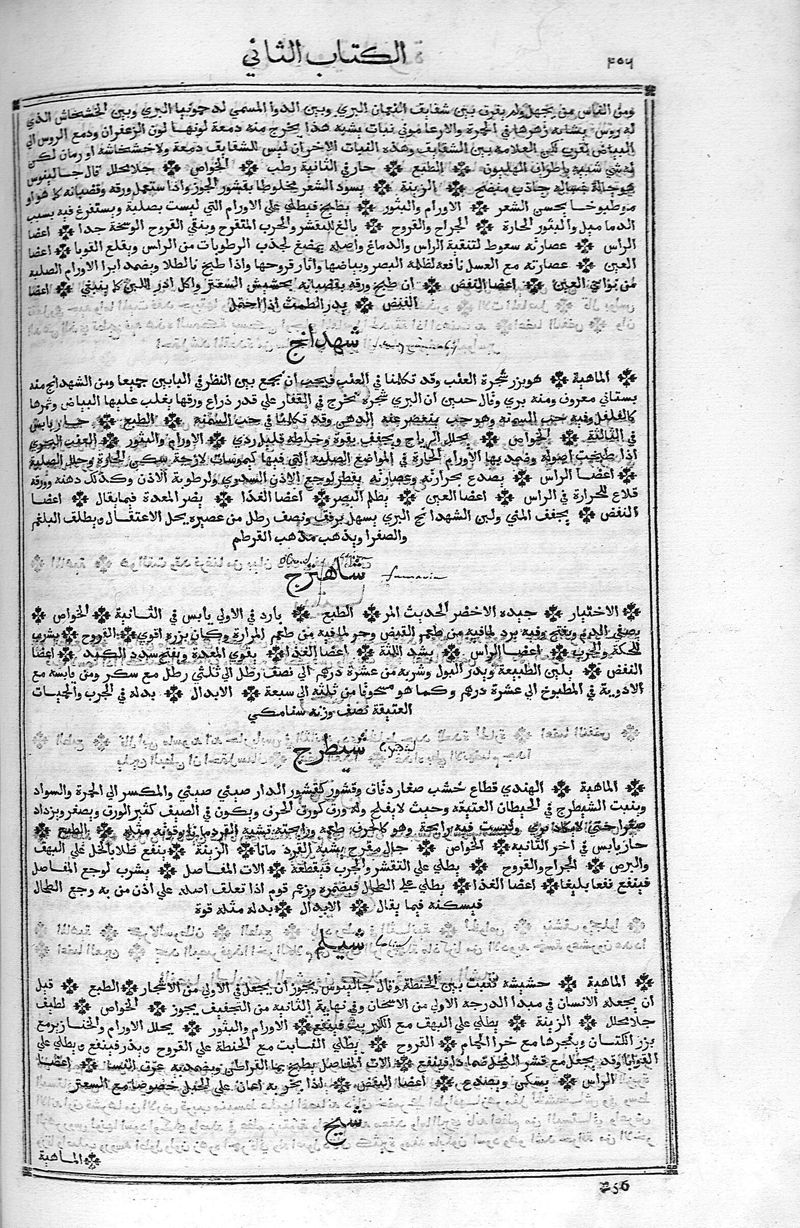 الكتاب الثاني
٢٥٦
ومن الناس من يجهل ولم يفرق بين شقايق النعمان البري وبين الدوا المسمي وبين الخشخاش الذي
له روس يشابه زهرها في الحمرة نبات يشبه هذا يخرج منه دمعة لونها لون الزعفران ودمع الروس الي
البياض اقرب العلامة بين الشقايق وهذه النبات الاخران ليس للشقايق دمعة ولا خشخاشة او رمان لكن
له شي شبيه باطراف الهليون الطبع حار في الثانية رطب الخواص جلا محلل قال جالينوس
جلاة غسالة جاذب منضج الزينة يسود الشعر مخلوطا بقشور الجوز واذا ستعمل ورقه وقضبانه كما هو او
مطبوخا يحسن الشعر الاورام والبثور يطبخ فيطلي علي الاورام التي ليست بصلبة ويستفرغ فيه بسبب
الدماميل والبثور الحارة الجراح والقروح بالغ للتقشر والجرب المتقرح وينقي القروح الوسخة جدا اعضا
الراس عصارته سعوط لتنقية الراس والدماغ واصله يمضغ لجذب الرطوبات من الراس ويقلع القوبا اعضا
العين عصارته مع العسل نافعة لظلمة البصر وبياضها واثار قروحها واذا طبخ بالطلا ويضمد ابرا الاورام الصلبة
من نواحي العين اعضا النفض ان طبخ ورقه بقضبانه بحشيش السعتر واكل ادر اللبن اعضا
النفض يدر الطمث اذا احتمل
شهدانج
الماهية هو بزر شجرة القنب وقد تكلمنا في القنب فيجب ان يجمع بين النظر في البابين جميعا ومن الشهدانج منه
بستاني معروف ومنه بري وقال حنين ان البري شجرة تخرج في القفار علي قدر ذراع ورقها يغلب عليها البياض وثمرها
كالفلفل وفيه حب السمنة وهو حب ينعصر عنه الدهن وقد تكلمنا في حب السمنة الطبع حار يابس
في الثالثة الخواص يحلل الرياح ويجفف بقوة وخلطه قليل ردي الاورام والبثور القنب البري
اذا طبخت اصوله وضمد بها الاورام الحارة في المواضع الصلبة التي فيها كيموسات لازجة سكن الحارة وحلل الصلبة
اعضا الراس يصدع بحرارته وعصارته يقطر لوجع الاذن السددي ولرطوبة الاذن وكذلك دهنه وورقه
قلاع للحزازة في الراس اعضا العين يظلم البصر اعضا الغذا يضر المعدة فيما يقال اعضا
النفض يجفف المني ولبن الشهدانج البري يسهل برفق ونصف رطل من عصيره يحل الاعتقال ويطلق البلغم
والصفرا ويذهب مذهب القرطم
شاهترج
fumaria
الاختيار جيده الاخضر الحديث المر الطبع بارد في الاولي يابس في الثانية الخواص
يصفي الدم ويفتح وفيه برد لما فيه من طعم القبض وحر لما فيه من طعم المرارة وكان بزره اقوي القروح يشرب
للحكة والجرب اعضا الراس يشد اللثة اعضا الغذا يقوي المعدة ويفتح سدد الكبد اعضا
النفض يلين الطبيعة ويدر البول وشربه من عشرة درهم الي نصف رطل الي ثلثي رطل مع سكر ومن يابسه مع
الادوية في المطبوخ الي عشرة درهم وكما هو مسحوقا من ثلثة الي سبعة الابدال بدله في الجرب والحميات
العتيقة نصف وزنه سنا مكي
شيطرج
الماهية الهندي قطاع خشب صغار دقاق وقشور كقشور الدار صيني والمكسر الي الحمرة والسواد
وينبت الشيطرج في الحيطان العتيقة وحيث لا يفلح وله ورق كورق الحرف ويكون في الصيف كثير الورق ويصغر ويزداد
صغرا حتي لا يكاد يري وليست فيه رايحة وهو كالحرف طعمه ورايحته تشبه القردمانا وقوته مثله الطبع
حار يابس في اخر الثانية الخواص جال ومقرح يشبه القردمانا الزينة ينفع طلا بالخل علي البهق
والبرص الجراح والقروح يطلي علي التقشر والجرب فيقلعه الات المفاصل يشرب لوجع المفاصل
فينفع نفعا بليغا اعضا الغذا يطلي علي الطحال فيضمره وزعم قوم اذا تعلق اصله علي اذن من به وجع الطحال
فيسكنه فيما يقال الابدال بدله مثله فوة
شيلم
الماهية حشيشة تنبت بين الحنطة وقال جالينوس يجوز ان يجعل في الاولي من الاسخان الطبع قيل
ان يجعله الانسان في مبدا الدرجة الاولي من الاسخان وفي نهاية الثانية من التجفيف يجوز الخواص لطيف
جلا محلل الزينة يطلي علي البهق مع الكبريت فينفع الاورام والبثور يحلل الاورام والخنازير مع
بزر الكتان ويفجرها مع خرا الحمام القروح يطلي النابت مع الحنطة علي القروح فينفع ويطلي علي
القوابا وقد يجعل مع قشر الفجل ضمادا فينفع الات المفاصل يطبخ بما القراطن ويضمد به عرق النسا اعضا
الراس يسكر ويصدع اعضا النفض اذا بخر به اعان علي الحبل خصوصا مع السعتر
شيح
الماهية
256